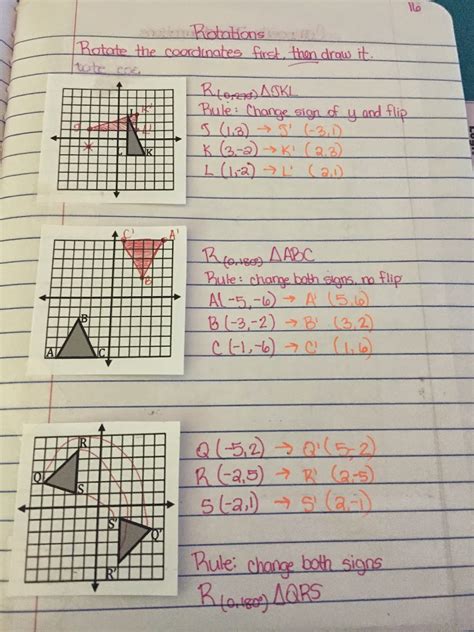 116
Rotations
Rotate the coordinates first, then draw it.
R(0,270) △JKL
Rule: Change sign of y and flip
J (1,3) → J' (-3,1)
K (3,-2) → K' (2,3)
L (1,-2) → L' (2,1)
J' K' L'
L K
R(0,180°) △ABC
Rule: change both signs, no flip
A(-5,-6) → A' (5,6)
B(-3,-2) → B' (3,2)
C(-1,-6) → C' (1,6)
C' A'
B'
B
A C
Q(-5,2) → Q' (5,-2)
R(-2,5) → R' (2,-5)
S(-2,1) → S' (2,-1)
Rule: change both signs
R(0,180°) △QRS
R
Q
S
S'
Q'
R'